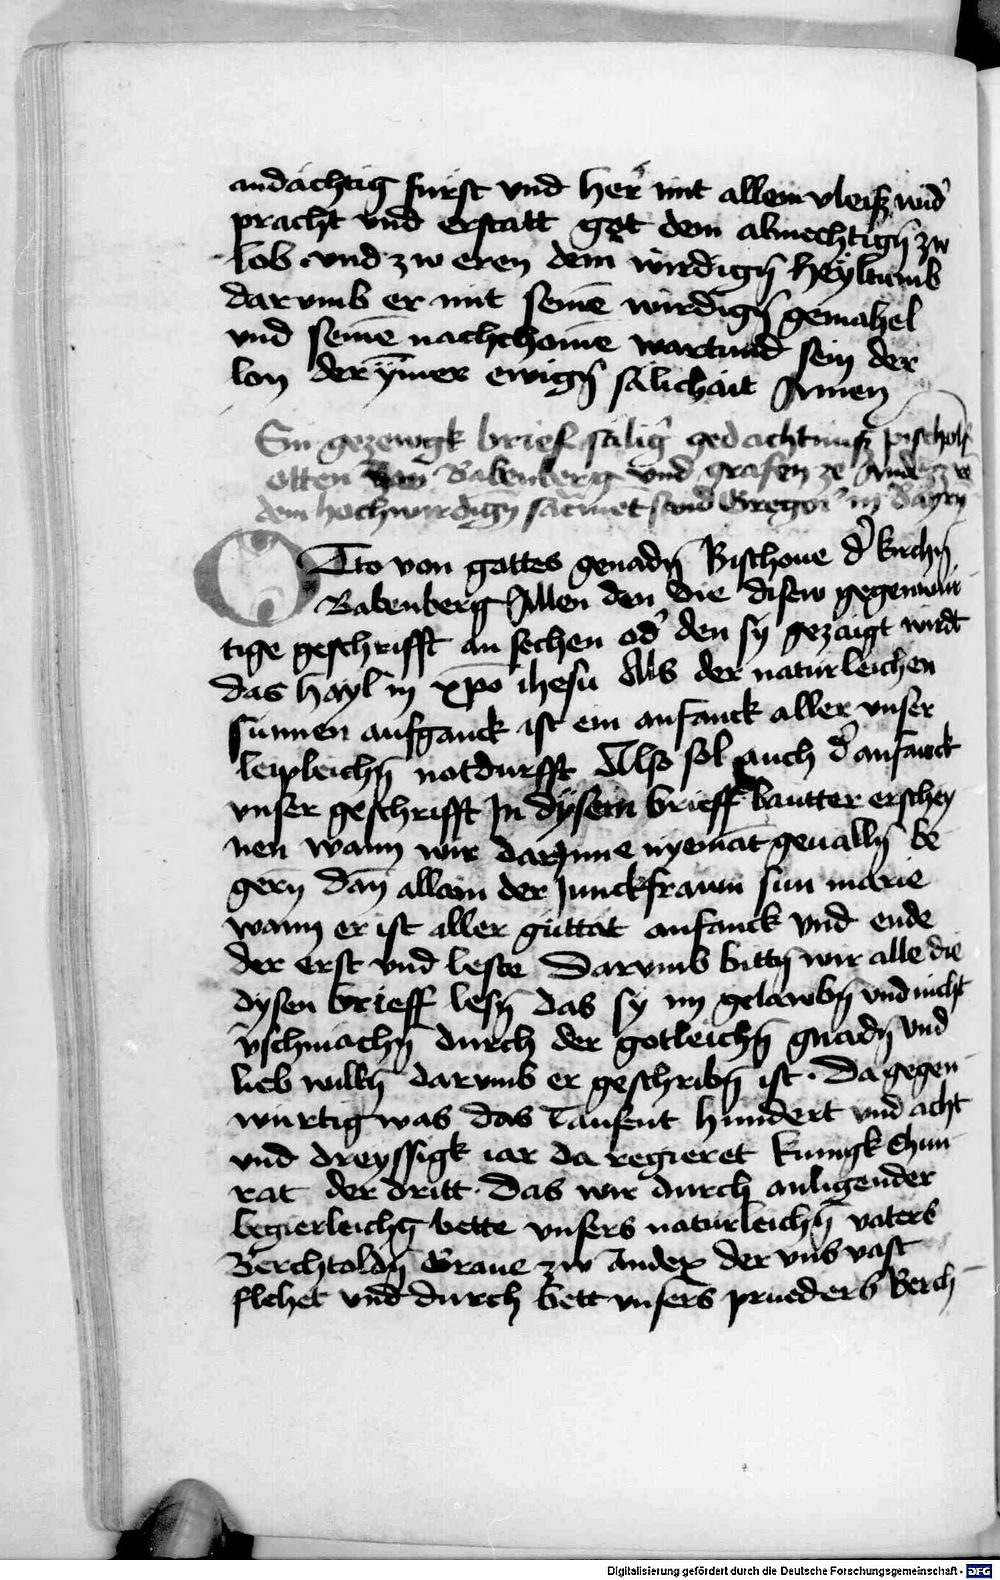 andächtig fürst vnd her mit allem vleisz wid'
pracht vnd erstatt got dem almechtigñ zw
lob vnd zw eren dem wirdigñ heyltumb
darvmb er mit seinē wirdigñ gemahel
vnd seinē nachchomē wartund sein der
lon der ymer ewigñ sälichait Amen
Ein gezewgk brief salig' gedachtnusz pischolf
otten von Babenberg vnd grafen ze Andex vō
dem hochwirdigñ sacmēt sand Gregorī in Bayrn
OTto von gottes genadñ Bischoue d' kirchñ
Babenberg Allen den die disew gegenwür
tige geschrifft an sechen od' den sy gezaigt wirdt
das hayl in xp̄o ihesu Als der naturleichen
sunnen aufganck ist ein anfanck aller vnser
leipleichñ notdurfft Also sol auch d' anfanck
vnser geschrifft In dysem brieff lautter erschey
nen wann wir darInne nyemāt geuallñ be
gern dañ allain der Junckfrawn sun marie
wann er ist aller guttat anfanck vnd ende
der erst vnd leste Darvmb bittñ wir alle die
dysen brieff lesñ das sy im gelawbñ vnd nicht
v̄schmachñ durch der gotleichñ gnadñ vnd
lieb willñ darvmb er geschribñ ist · Da gegen
wurtig was das Tausent hundert vnd acht
vnd dreyssigk iar da regieret kunigk Chun
rat der dritt · Das wir durch anligender
begierleichñ bette vnsers naturleichñ vaters
Berchtoldñ Graue zw Andex der vns vast
flehet vnd durch bett vnsers prueders Berch
Digitalisierung gefördert durch die Deutsche Forschungsgemeinschaft - DFG